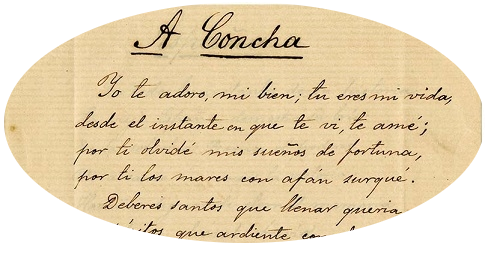 A Concha
Yo te adoro, mi bien; tu eres mi vida,
desde el instante en que te vi, te amé;
por ti olvidé mis sueños de fortuna,
por ti los mares con afán surqué.
Deberes santos que llenar queria
que ardiente